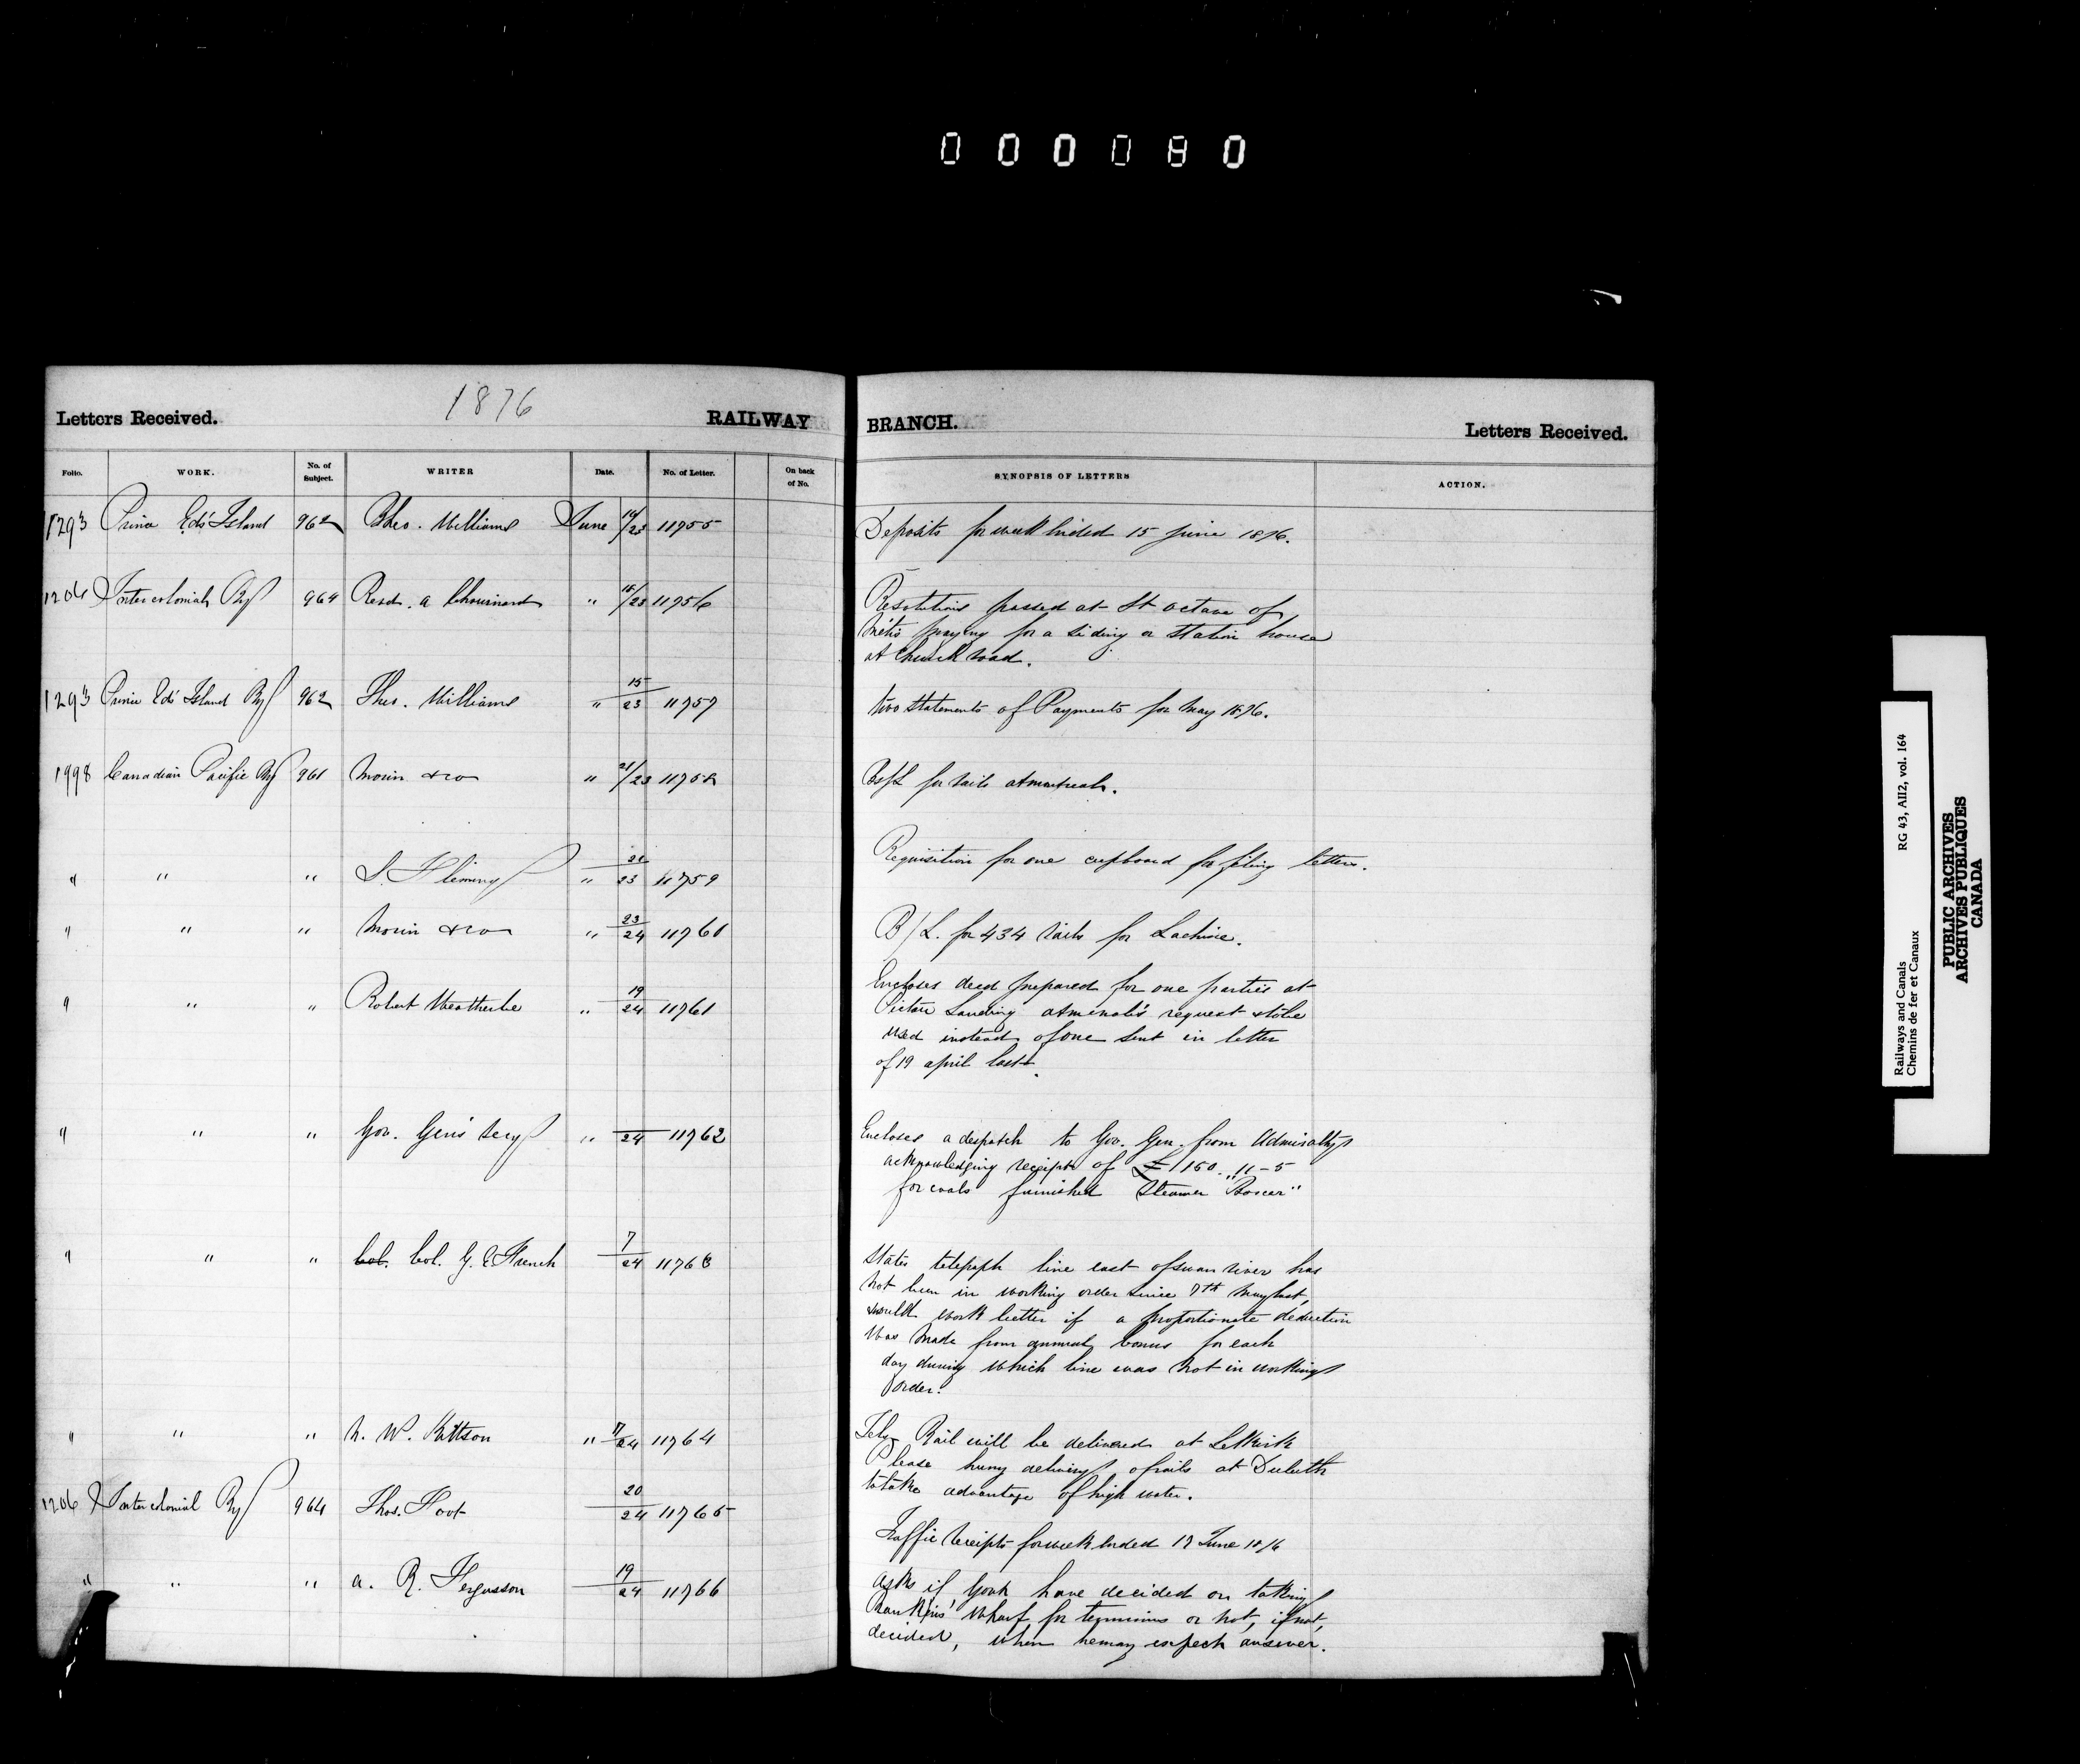 000080
1876
Letters Received. RAILWAY BRANCH. Letters Received.
Folio. WORK. No. of Subject. WRITER Date. No. of Letter. On back of No. SYNOPSIS OF LETTERS ACTION.
1293 Prince Eds' Island 962 Theo. Williams June 19/23 11755 Deposits for week Ended 15 June 1876.
1206 Intercolonial Ry 964 Revd. A Chouinard " 15/23 11756 Resolutions passed at St Octave of
Métis praying for a siding or station house
at Church road.
1293 Prince Eds' Island Ry 962 Thos. Williams " 15/23 11757 Two Statements of Payments for May 1876.
1998 Canadian Pacific Ry 961 Morin & Co " 21/23 11758 Bs/L for rails at Montreal.
" " " S. Fleming " 21/23 11759 Requisition for one cupboard for filing letters.
" " " Morin & Co " 23/24 11760 B/L. for 434 rails for Lachine.
" " " Robert Weatherbe " 19/24 11761 Encloses deed prepared for one parties at
Pictou Landing at request & to be
used instead of one sent in letter
of 19 April last.
" " " Gov. Gen's Secy " /24 11762 Encloses a despatch to Gov. Gen. from Admiralty
acknowledging receipt of £1150 " 11 - 5
for coals furnished Steamer "Boxer"
" " " Col. Col. G. A. French 7/24 11763 States telegraph line east of Swan river has
not been in working order since 7th May last,
would work better if a proportionate deduction
was made from annual bonus for each
day during which line was not in working
order.
" " " N. W. Kittson " 7/24 11764 Tely Rail will be delivered at Selkirk
Please hurry delivery of rails at Duluth
to take advantage of high water.
1206 Intercolonial Ry 964 Thos. Foot 20/24 11765 Traffic receipts for week ended 17 June 1876
" " " A. R. Fergusson 19/24 11766 Asks if Govt have decided on taking
Rankins' Wharf for terminus or not, if not,
decided, when he may expect answer.
Railways and Canals RG 43, AII2, vol. 164
Chemins de fer et Canaux
PUBLIC ARCHIVES
ARCHIVES PUBLIQUES
CANADA